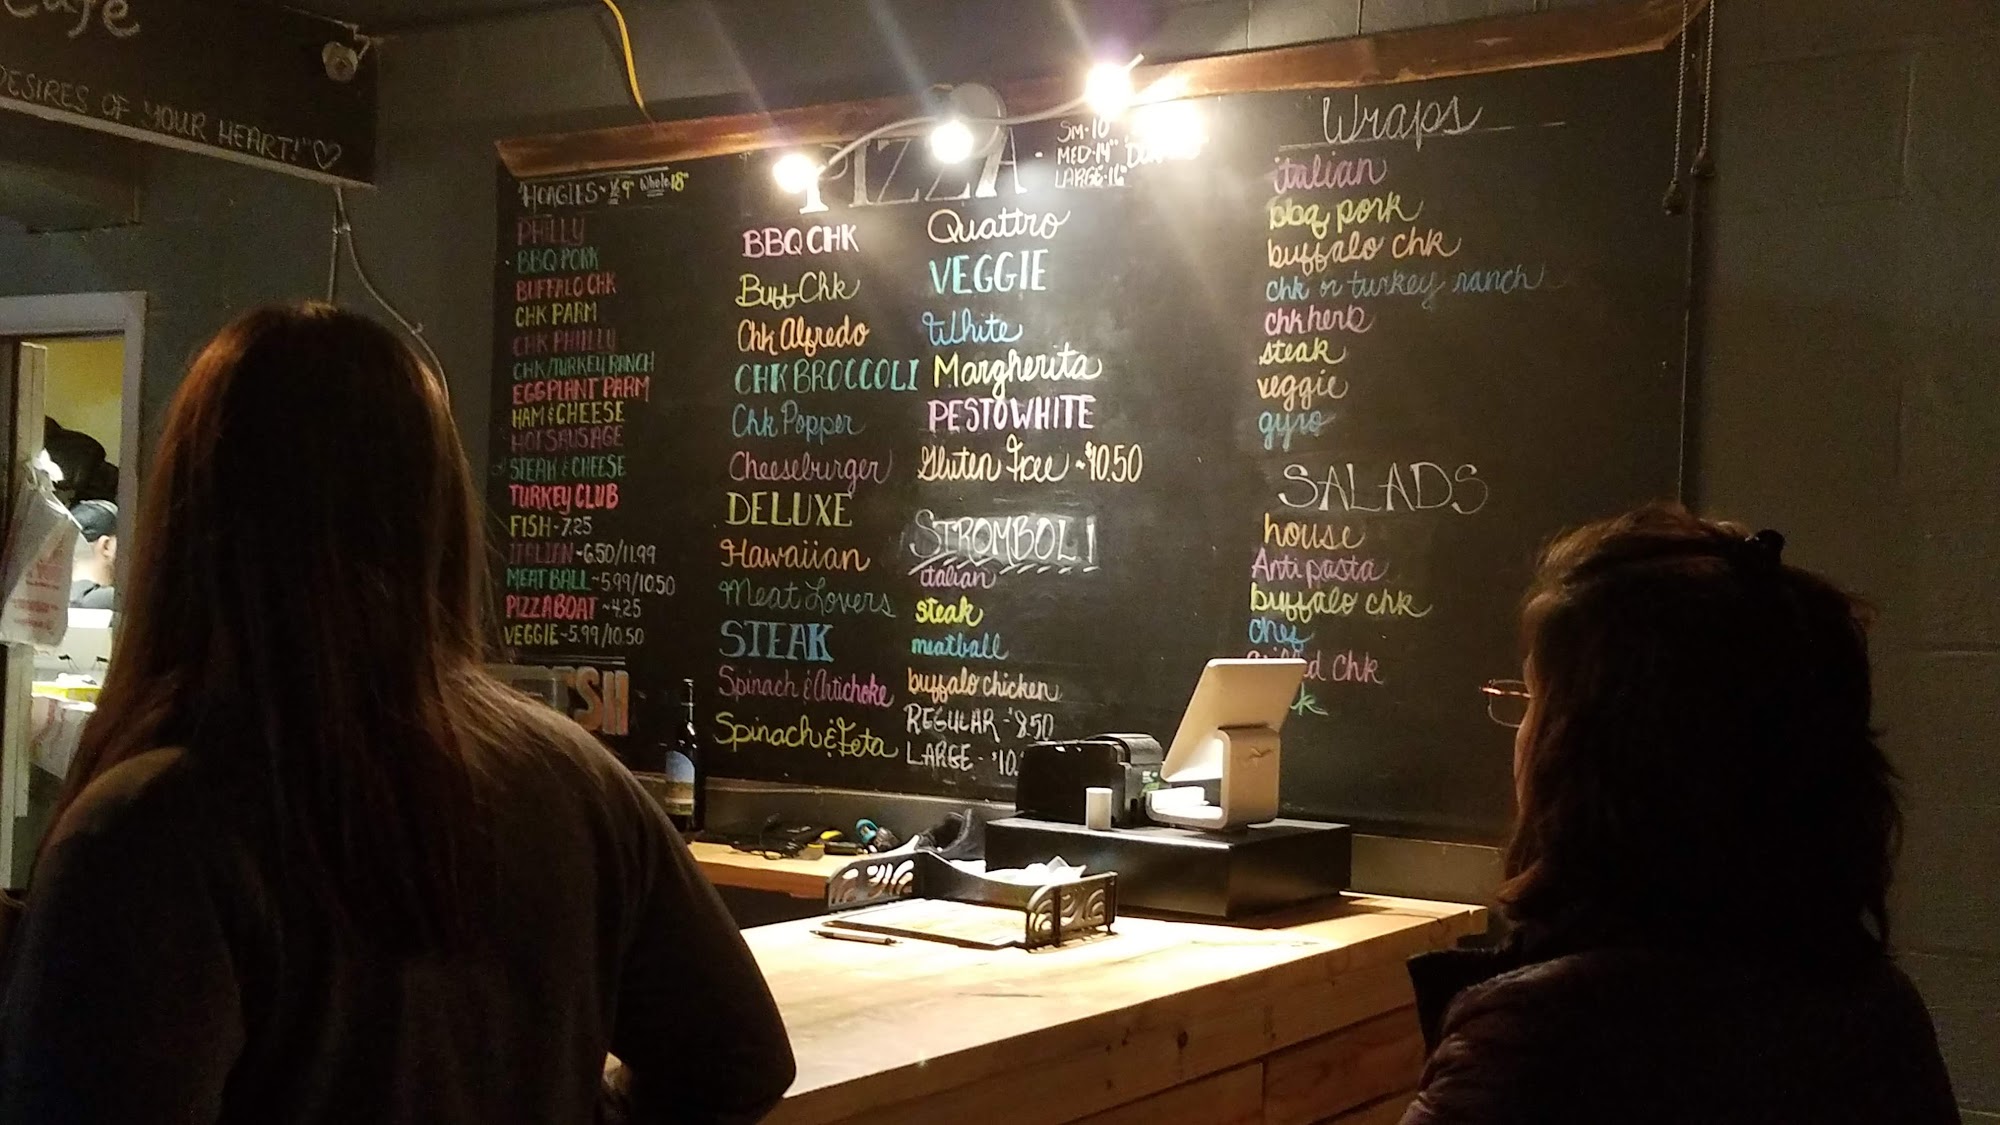 Cafe
DESIRES OF YOUR HEART!"
HOAGIES ~ ½ 9" Whole 18"
PHILLY
BBQ PORK
BUFFALO CHK
CHK PARM
CHK PHILLY
CHK/TURKEY RANCH
EGGPLANT PARM
HAM & CHEESE
HOT SAUSAGE
STEAK & CHEESE
TURKEY CLUB
FISH - 7.25
ITALIAN ~ 6.50/11.99
MEATBALL ~ 5.99/10.50
PIZZA BOAT ~ 4.25
VEGGIE ~ 5.99/10.50
PIZZA -
SM - 10"
MED - 14"
LARGE - 16"
BBQ CHK
Buff Chk
Chk Alfredo
CHK BROCCOLI
Chk Popper
Cheeseburger
DELUXE
Hawaiian
Meat Lovers
STEAK
Spinach & Artichoke
Spinach & Feta
Quattro
VEGGIE
White
Margherita
PESTO WHITE
Gluten Free ~ $10.50
STROMBOLI
italian
steak
meatball
buffalo chicken
REGULAR - $8.50
LARGE - $10.
Wraps
italian
bbq pork
buffalo chk
chk or turkey ranch
chk herb
steak
veggie
gyro
SALADS
house
Antipasta
buffalo chk
chef
chk